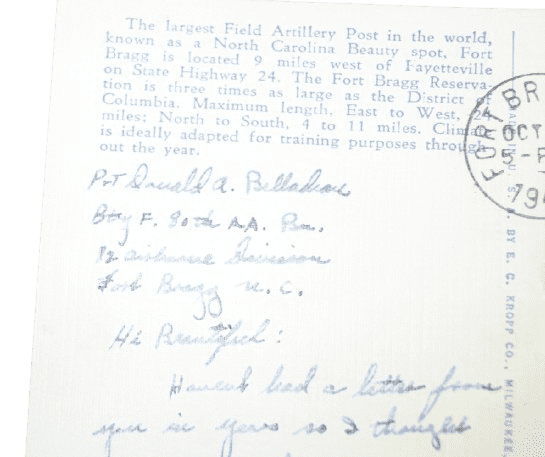 The largest Field Artillery Post in the world,
known as a North Carolina Beauty spot, Fort
Bragg is located 9 miles west of Fayetteville
on State Highway 24. The Fort Bragg Reserva-
tion is three times as large as the District of
Columbia. Maximum length, East to West, 24
miles; North to South, 4 to 11 miles. Climate
is ideally adapted for training purposes through-
out the year.
Pvt Donald A.
Bty F. 80th A.A. Bn.
Airborne Division
Fort Bragg N. C.
Hi Beautiful:
Havent had a letter from
you in years so I thought
FORT BR
OCT
5-P
194
MADE IN U. S. A. BY E. C. KROPP CO., MILWAUKEE,